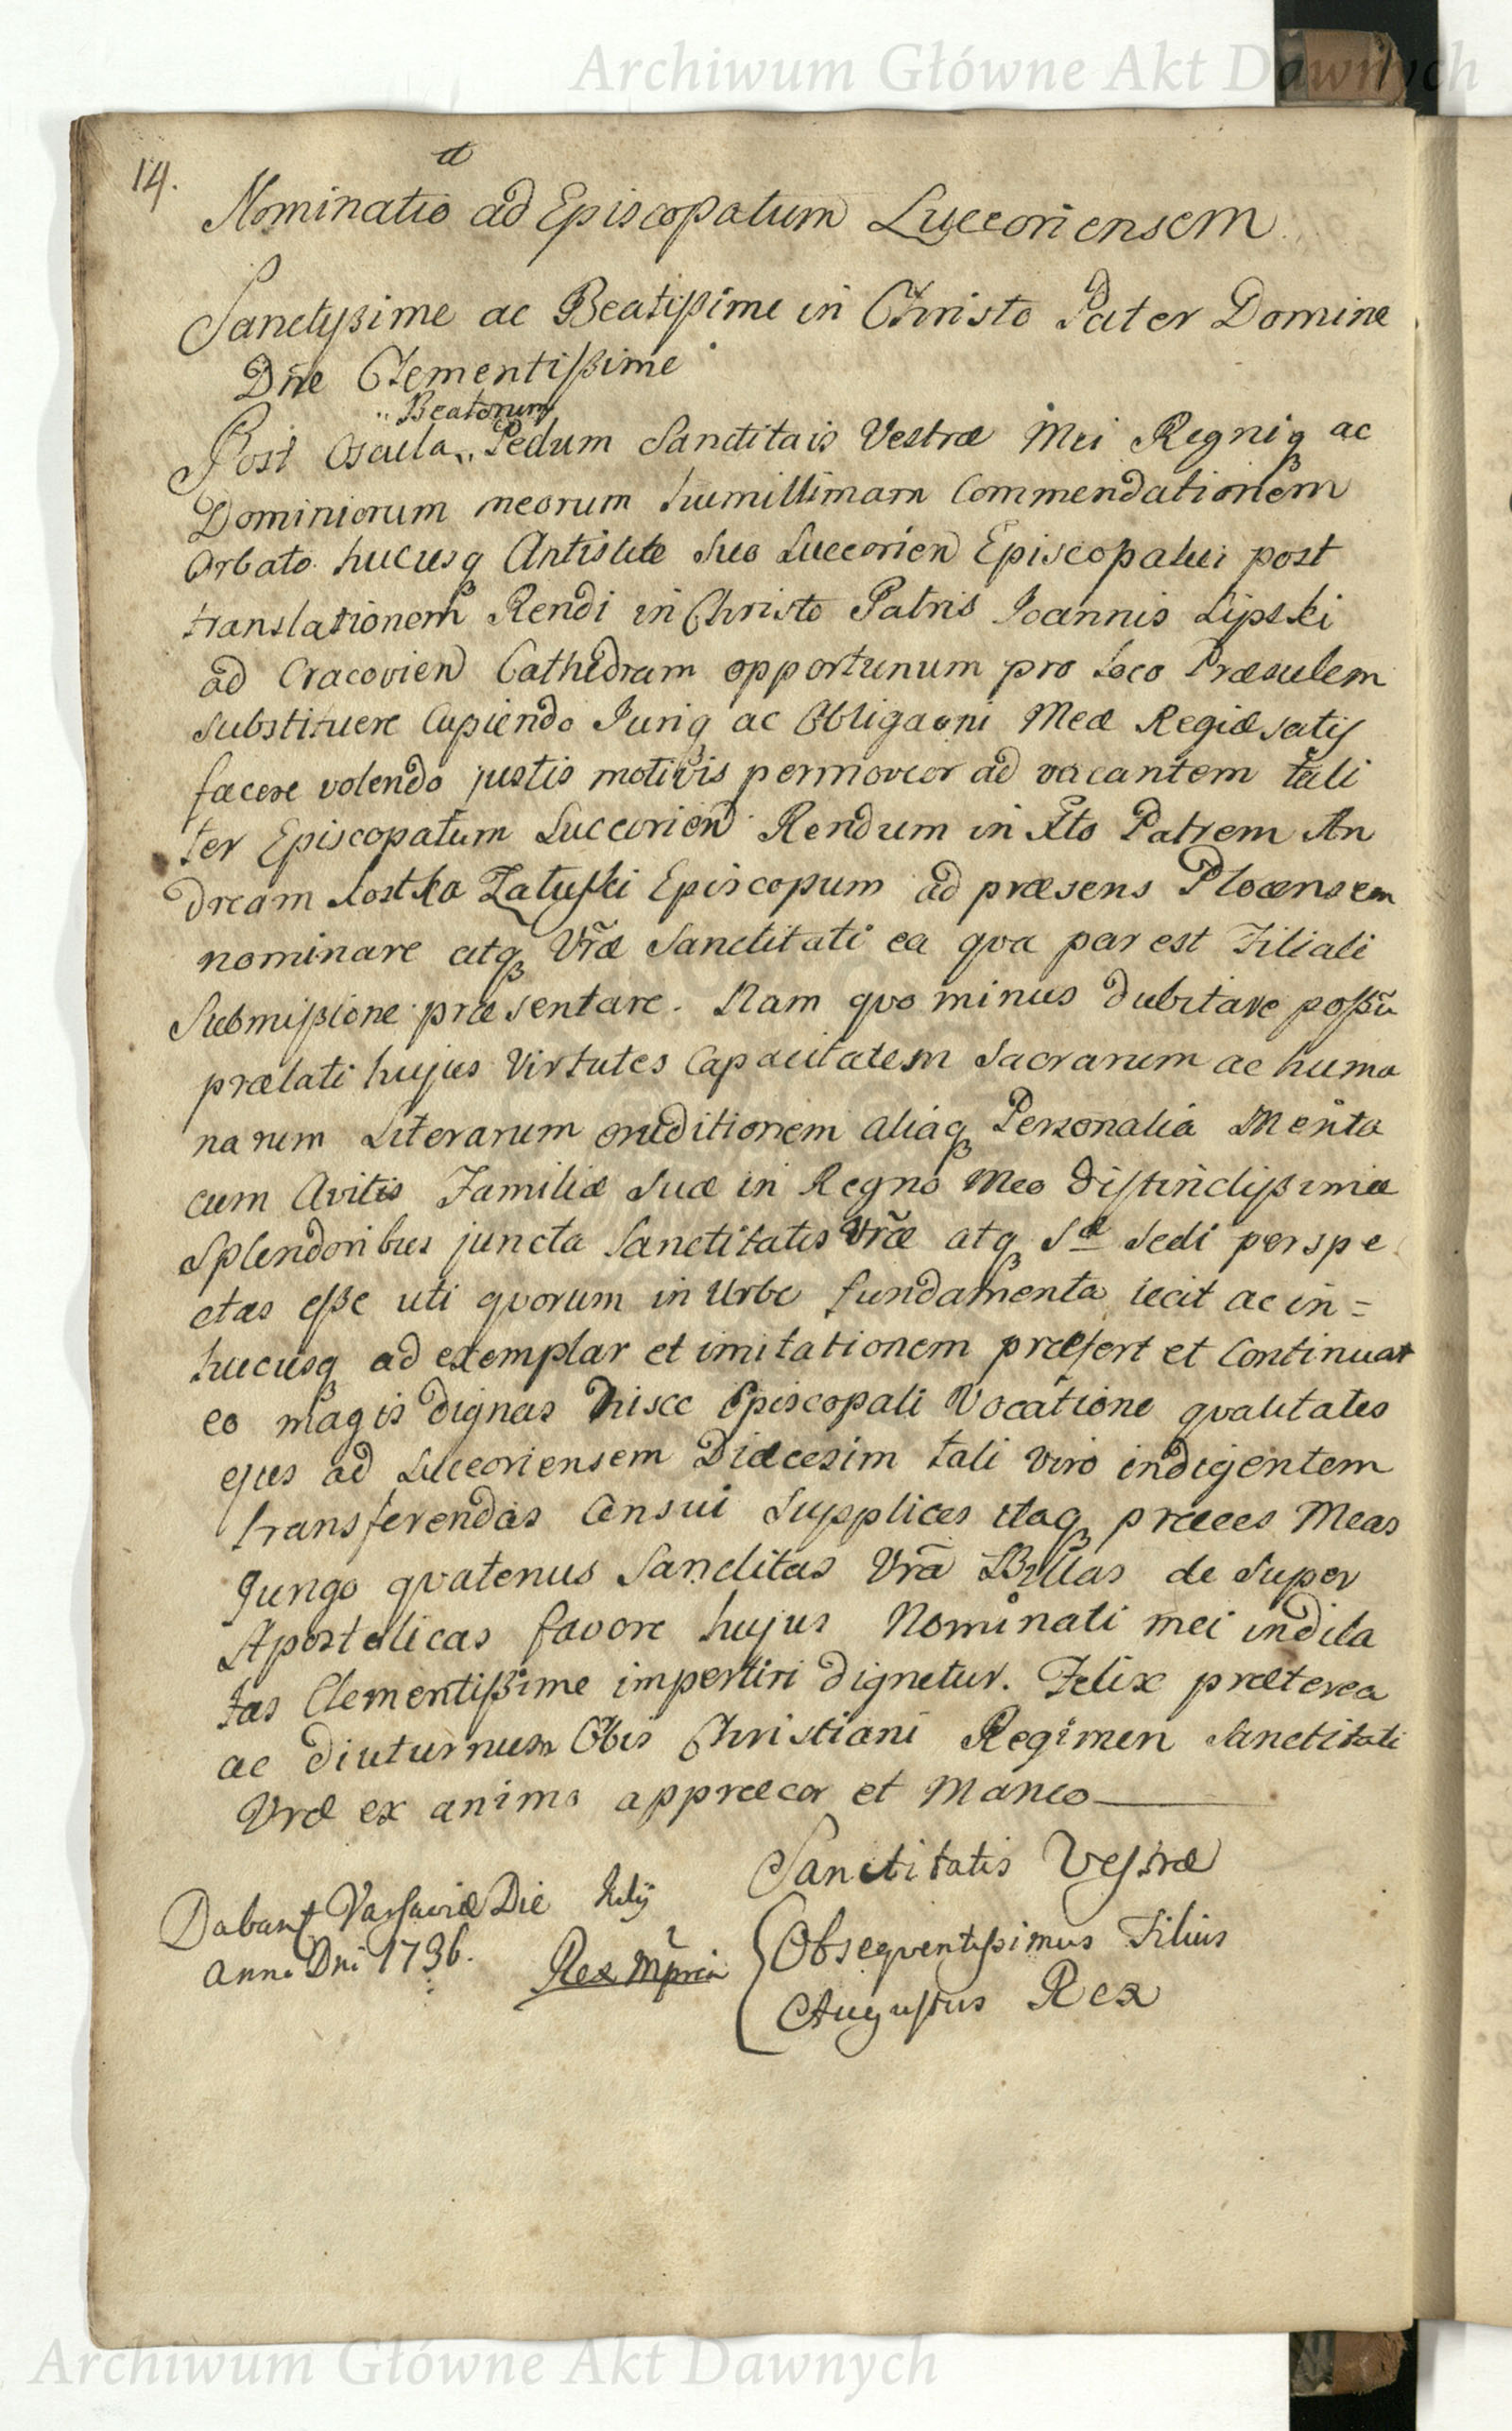 Archiwum Główne Akt Dawnych
14.
Nominatio ad Episcopatum Luceoriensem
Sanctyßime ac Beatißime in Christo Pater Domine
Dñe Clementißime
Beatorum
Post Oscula Pedum Sanctitais Vestræ Mei Regniq ac
Dominiorum meorum humillimam Commendationem
Orbato hucusq Antistite suo Luceorien Episcopatui post
translationem Rendi in Christo Patris Joannis Lipski
ad Cracovien Cathedram opportunum pro Loco Præsulem
substituere Cupiendo Juriq ac Obligaoni Meæ Regiæ satis
facere volendo justis motivis permoveor ad vacantem tali
ter Episcopatum Luceorien Rendum in Xto Patrem An
dream Kostka Załuski Episcopum ad præsens Plocensem
nominare atq Vræ Sanctitati ea qva par est Filiali
Submißione præsentare. Nam qvo minus dubitare poßũ
prælati hujus Virtutes Capacitatem Sacrarum ac huma
narum Literarum eruditionem aliaq Personalia Merita
cum Avitis Familiæ Suæ in Regno Meo distinctißimæ
Splendoribus juncta Sanctitatis Vræ atq Sæ Sedi perspe
ctas eße uti qvorum in Urbe fundamenta iecit ac in=
hucusq ad exemplar et imitationem præfert et Continuat
eo magis dignas hisce Episcopali Vocatione qvalitates
ejus ad Luceoriensem Diæcesim tali viro indigentem
transferendas Censui Supplices itaq præces Meas
Jungo qvatenus Sanctitas Vrã Bullas de super
Apostolicas favore hujus Nominati mei indila
tas Clementißime impertiri dignetur. Felix præterea
ac diuturnum Obis Christiani Regimen Sanctitati
Vræ ex animo appræcor et Maneo
Sanctitatis Vestræ
Dabant Varsaviæ Die Julij
Anno Dni 1736.
Rex Mpria
Obseqventissimus Filius
Augustus Rex
Archiwum Główne Akt Dawnych